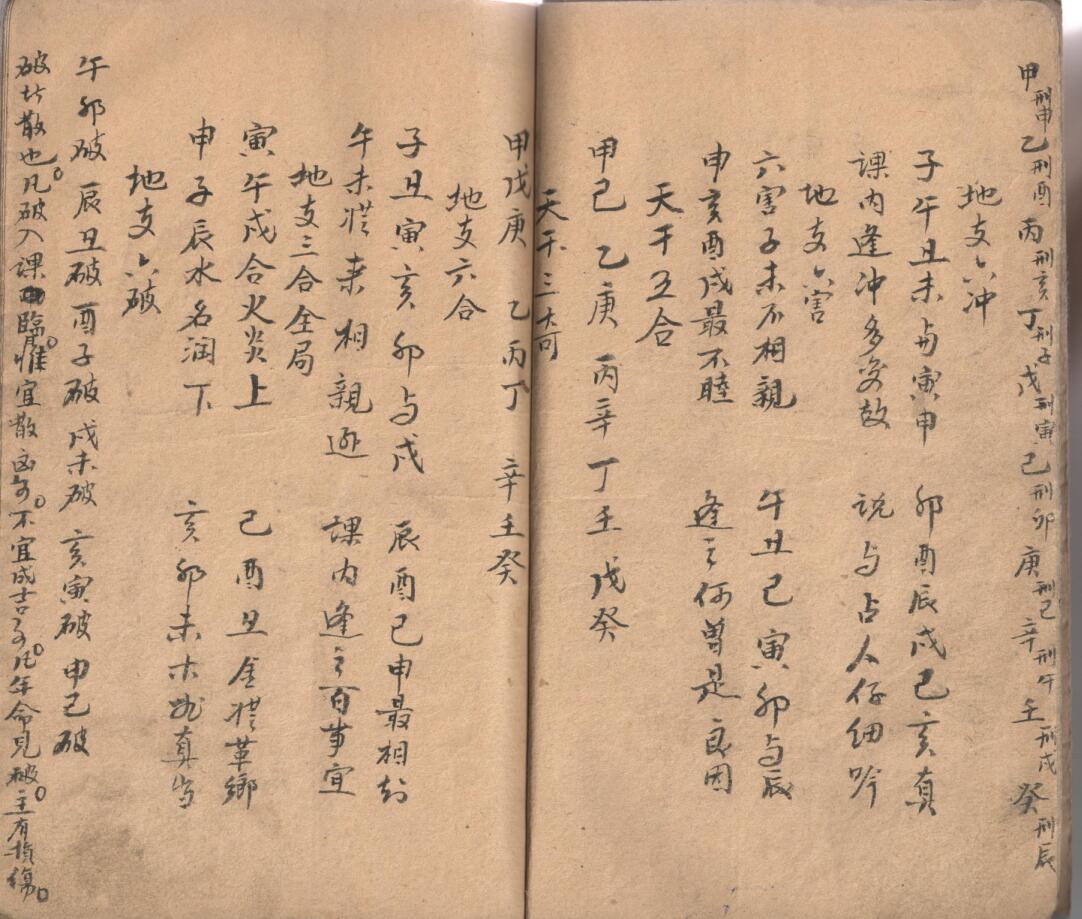 甲刑申乙刑酉丙刑亥丁刑子戊刑寅己刑卯庚刑巳辛刑午壬刑戌癸刑辰
地支六冲
子午丑未与寅申 卯酉辰戌巳亥真
課内逢冲多变故 説与占人仔细吟
地支六害
六害子未不相親 午丑巳寅卯与辰
申亥酉戌最不睦 逢之何曽是良因
天干五合
甲己 乙庚 丙辛 丁壬 戊癸
天干三奇
甲戊庚 乙丙丁 辛壬癸
地支六合
子丑寅亥卯与戌 辰酉巳申最相
午未 相親 課内逢之百事宜
地支三合全局
寅午戌合火炎上 巳酉丑金 革鄉
申子辰水名润下 亥卯未木 真
地支六破
午卯破 辰丑破 酉子破 戌未破 亥寅破 申巳破
破者散也。凡破入課 臨。惟宜散凶事。不宜成吉事。凡年命見破。主有损傷。